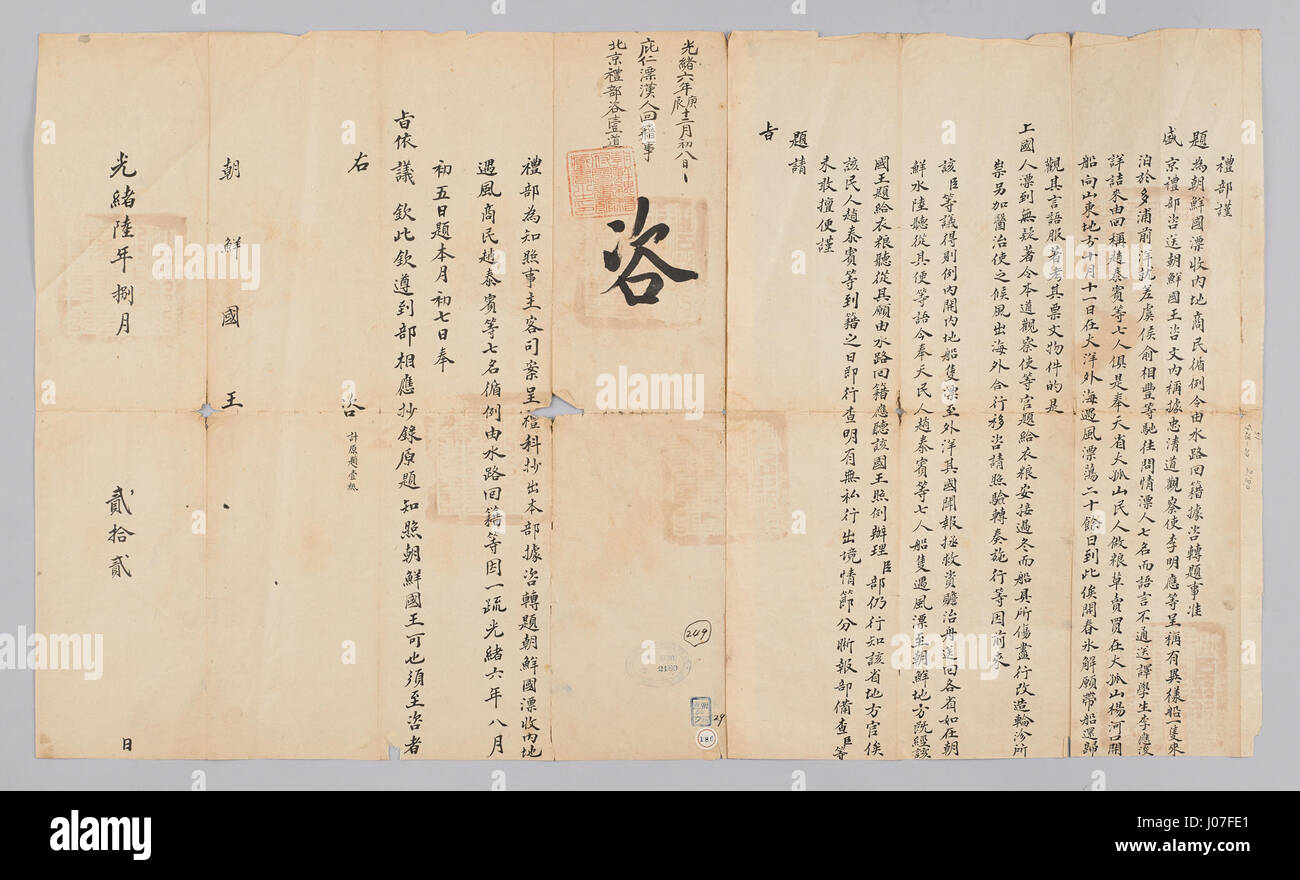 禮部謹
題為朝鮮國漂收內地商民循例令由水路回籍據咨轉題事准
盛京禮部咨送朝鮮國王咨文內稱據忠清道觀察使李明應等呈稱有異樣船一隻來
泊於多浦前洋就差虞侯俞相豐等馳往問情漂人七名而語言不通送譯學生李應浚
詳詰來由回稱趙泰賓等七人俱是奉天省大孤山民人做粮草賣買在大孤山楊河口開
船向山東地方十月十一日在大洋外海遇風漂蕩二十餘日到此俟開春氷解願帶船還歸
觀其言語服著考其票文物件的是
上國人漂到無疑著令本道觀察使等官題給衣粮安接過冬而船具所傷盡行改造輪診所
祟另加醫治使之候風出海外合行移咨請照驗轉奏施行等因前來
該臣等議得則例內開內地船隻漂至外洋其國開報拯救資贍治舟送回各省如在朝
鮮水陸聽從其便等語今奉天民人趙泰賓等七人船隻遇風漂至朝鮮地方既經該
國王題給衣粮聽從其願由水路回籍應聽該國王照例辦理臣部仍行知該省地方官俟
該民人趙泰賓等到籍之日即行查明有無私行出境情節分晰報部備查臣等
未敢擅便謹
題請
旨
光緒六年庚辰十二月初八日
庇仁漂漢人回籍事
北京禮部咨壹道
咨
禮部為知照事主客司案呈禮科抄出本部據咨轉題朝鮮國漂收內地
遇風商民趙泰賓等七名循例由水路回籍等因一疏光緒六年八月
初五日題本月初七日奉
旨依議欽此欽遵到部相應抄錄原題知照朝鮮國王可也須至咨者
計原題壹紙
右咨
朝鮮國王
光緒陸年捌月貳拾貳日
249
2180
29
186
alamy
Image ID: J07FE1
www.alamy.com